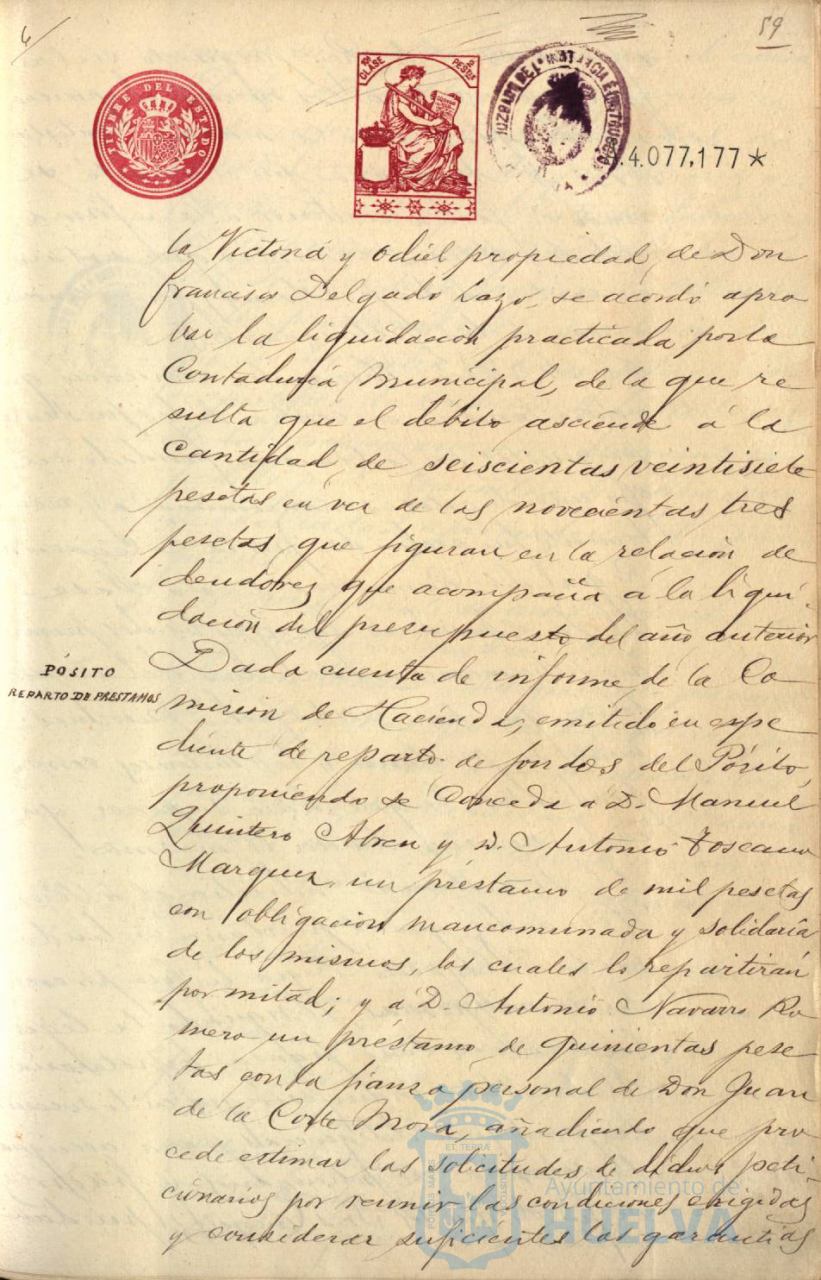 59
TIMBRE DEL ESTADO
CLASE
PESETAS
JUZGADO DE 1ª INSTANCIA É INSTRUCCIÓN
.4.077,177 *
la Victoria y Odiel propiedad, de Don
Francisco Delgado Lazo, se acordó apro
bar la liquidación practicada por la
Contaduría Municipal, de la que re
sulta que el débito asciende á la
cantidad de seiscientas veintisiete
pesetas en vez de las novecientas tres
pesetas que figuran en la relación de
deudores que acompaña á la liqui-
dación del presupuesto del año anterior
PÓSITO
REPARTO DE PRESTAMOS
Dada cuenta de informe de la Co
misión de Hacienda, emitido en expe
diente de reparto de fondos del Pósito,
proponiendo se conceda á D. Manuel
Quintero Abreu y D. Antonio Toscano
Marquez un préstamo de mil pesetas
con obligación mancomunada y solidaria
de los mismos, los cuales lo repartirán
por mitad; y á D. Antonio Navarro Ro
mero un préstamo de quinientas pese
tas con la fianza personal de Don Juan
de la Corte Mora, añadiendo que pro
cede estimar las solicitudes de dichos peti-
cionarios por reunir las condiciones exigidas
y considerar suficientes las garantías
Ayuntamiento de
HUELVA